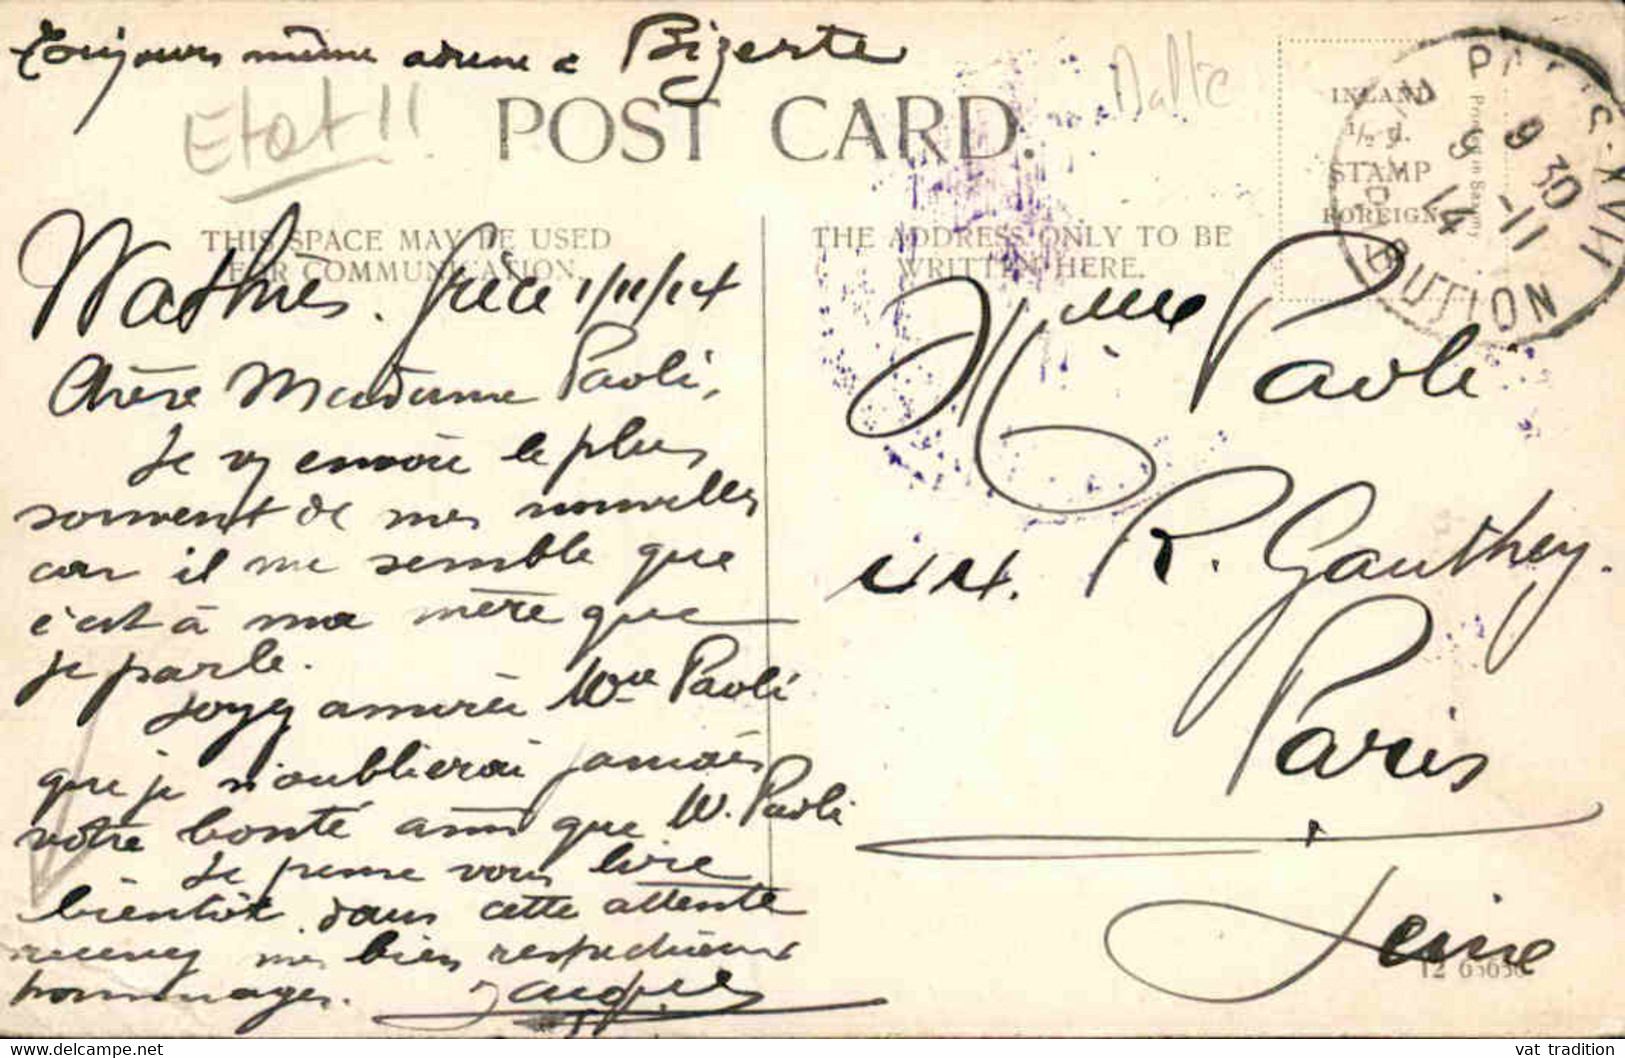 Toujours même adresse à Bizerte
Etat !!
Malte
POST CARD.
THIS SPACE MAY BE USED
FOR COMMUNICATION.
THE ADDRESS ONLY TO BE
WRITTEN HERE.
INLAND
1/2 d.
STAMP
FOREIGN
Printed in Saxony
PARIS-XVII
9 30
9 -11
14
DISTRIBUTION
1/11/14
Chère Madame Paoli,
Je vs envoie le plus
souvent de mes nouvelles
car il me semble que
c'est à ma mère que
je parle.
Soyez assurée Mme Paoli
que je n'oublierai jamais
votre bonté ainsi que M. Paoli
Je pense vous lire
bientôt dans cette attente
recevez mes bien respectueux
hommages. Jacques
Mme Paoli
R. Gauthey.
Paris
Seine
12 65656
vat_tradition
www.delcampe.net